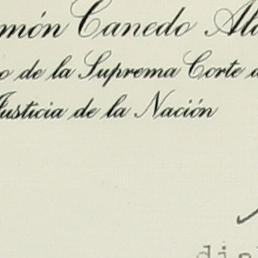 món Canedo Ald
o de la Suprema Corte d
Justicia de la Nación